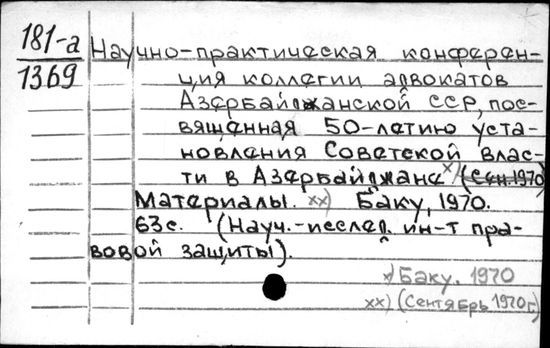 181-а
1369
Научно-практическая конферен-
ция коллегии адвокатов
Азербайджанской ССР, пос-
вященная 50-летию уста-
новления Советской влас-
ти в Азербайджане x) (Сен. 1970)
Материалы. xx) Баку, 1970.
63с. (Науч.-исслед. ин-т пра-
вовой защиты).
x) Баку. 1970
xx) (Сентябрь 1970 г.)